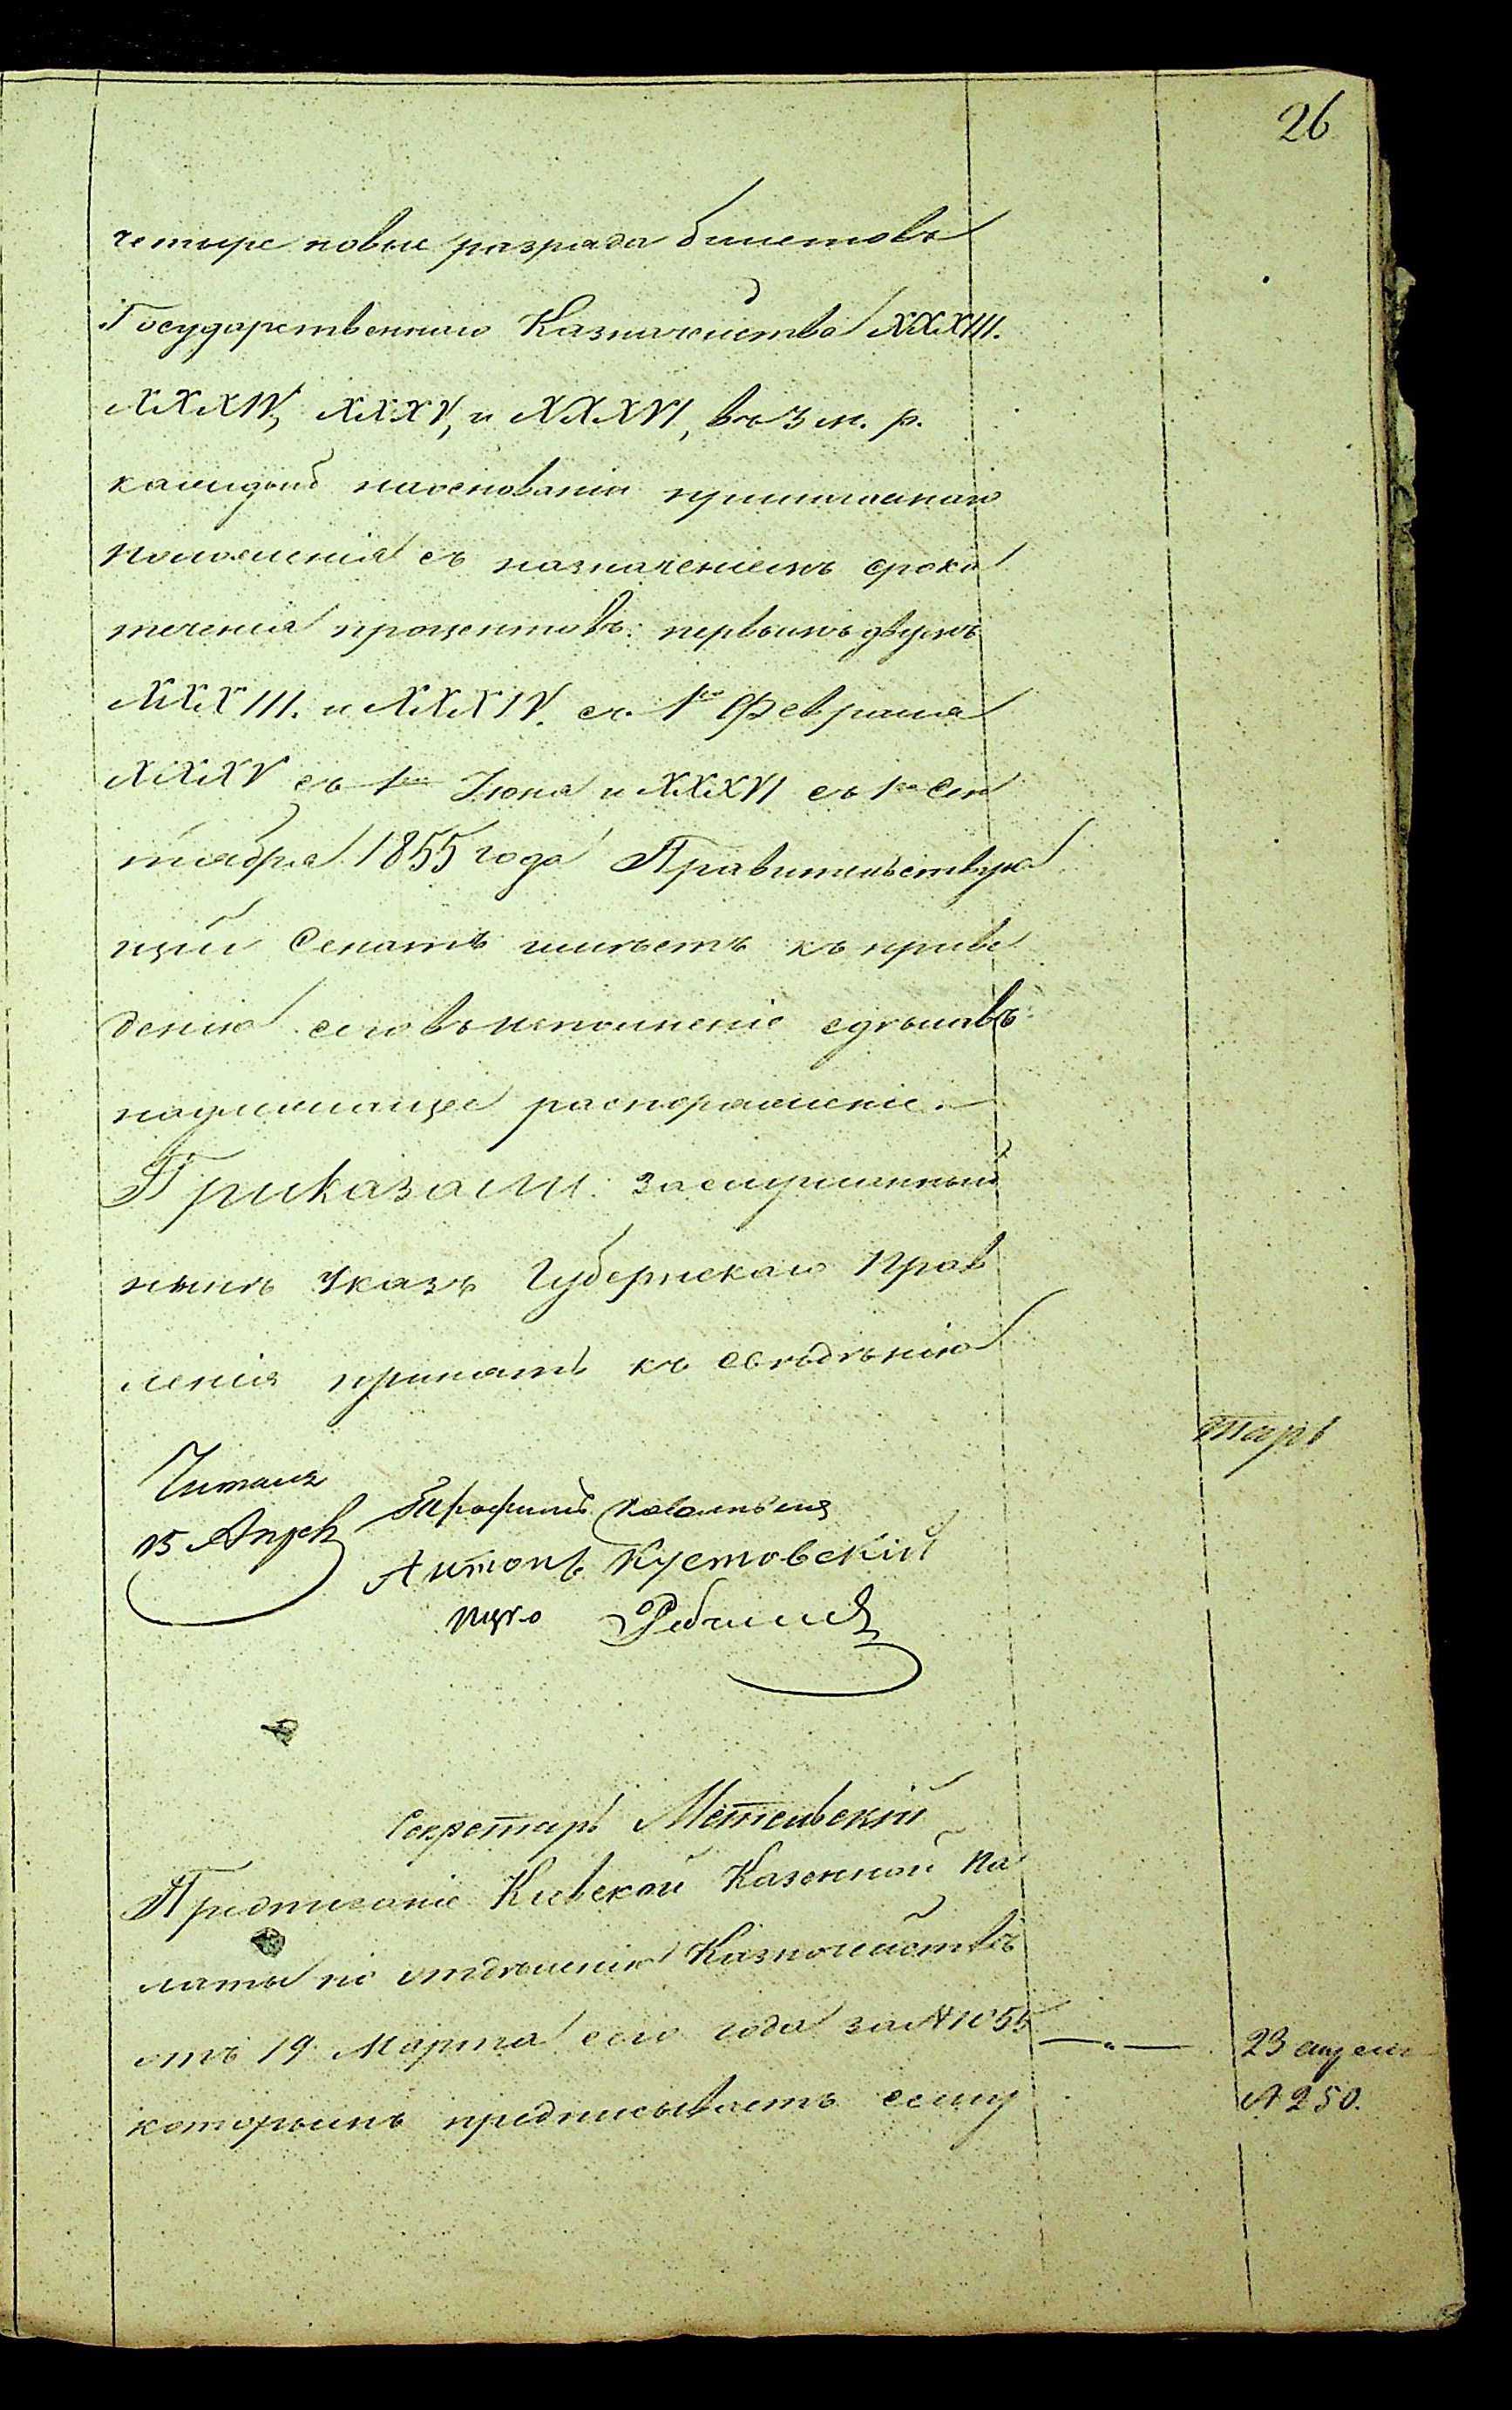 26
четыре новые разряда билетовъ
Государственнаго Казначейства XXXIII.
XXXIV, XXXV, и XXXVI, въ 3 м. р.
каждый наоснованіи прилагаемаго
положенія съ назначеніемъ срока
теченія процентовъ: первымъ двумъ
XXXIII. и XXXIV. съ 1го Февраля
XXXV съ 1го Іюня и XXXVI съ 1го Сен
тября 1855 года Правительствую
щій Сенатъ имѣетъ къ приве
денію сего въ исполненіе сдѣлать
надлежащее распоряженіе.
Приказали: заслушанный
нынѣ Указъ Губернскаго Прав
ленія принять къ свѣдѣнію
тарь
Читалъ
15 Апрѣ
Антонъ Кустовскій
Секретарь Метельскій
Предписаніе Кіевской Казенной Па
латы по отдѣленію Казначействъ
отъ 19 Марта сего года за № 1055
23 апреля
№ 250.
которымъ предписываетъ сему